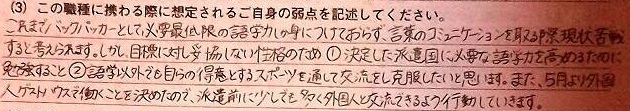 (3) この職種に携わる際に想定されるご自身の弱点を記述してください。
これまでバックパッカーとして必要最低限の語学力しか身につけておらず、言葉のコミュニケーションを取る際現状苦戦
すると考えられます。しかし目標に対し妥協しない性格のため①決定した派遣国に必要な語学力を高めるために
勉強すること②語学以外でも自らの得意とするスポーツを通して交流をし克服したいと思います。また、5月より外国
人ゲストハウスで働くことを決めたので、派遣前に少しでも多く外国人と交流できるよう行動していきます。